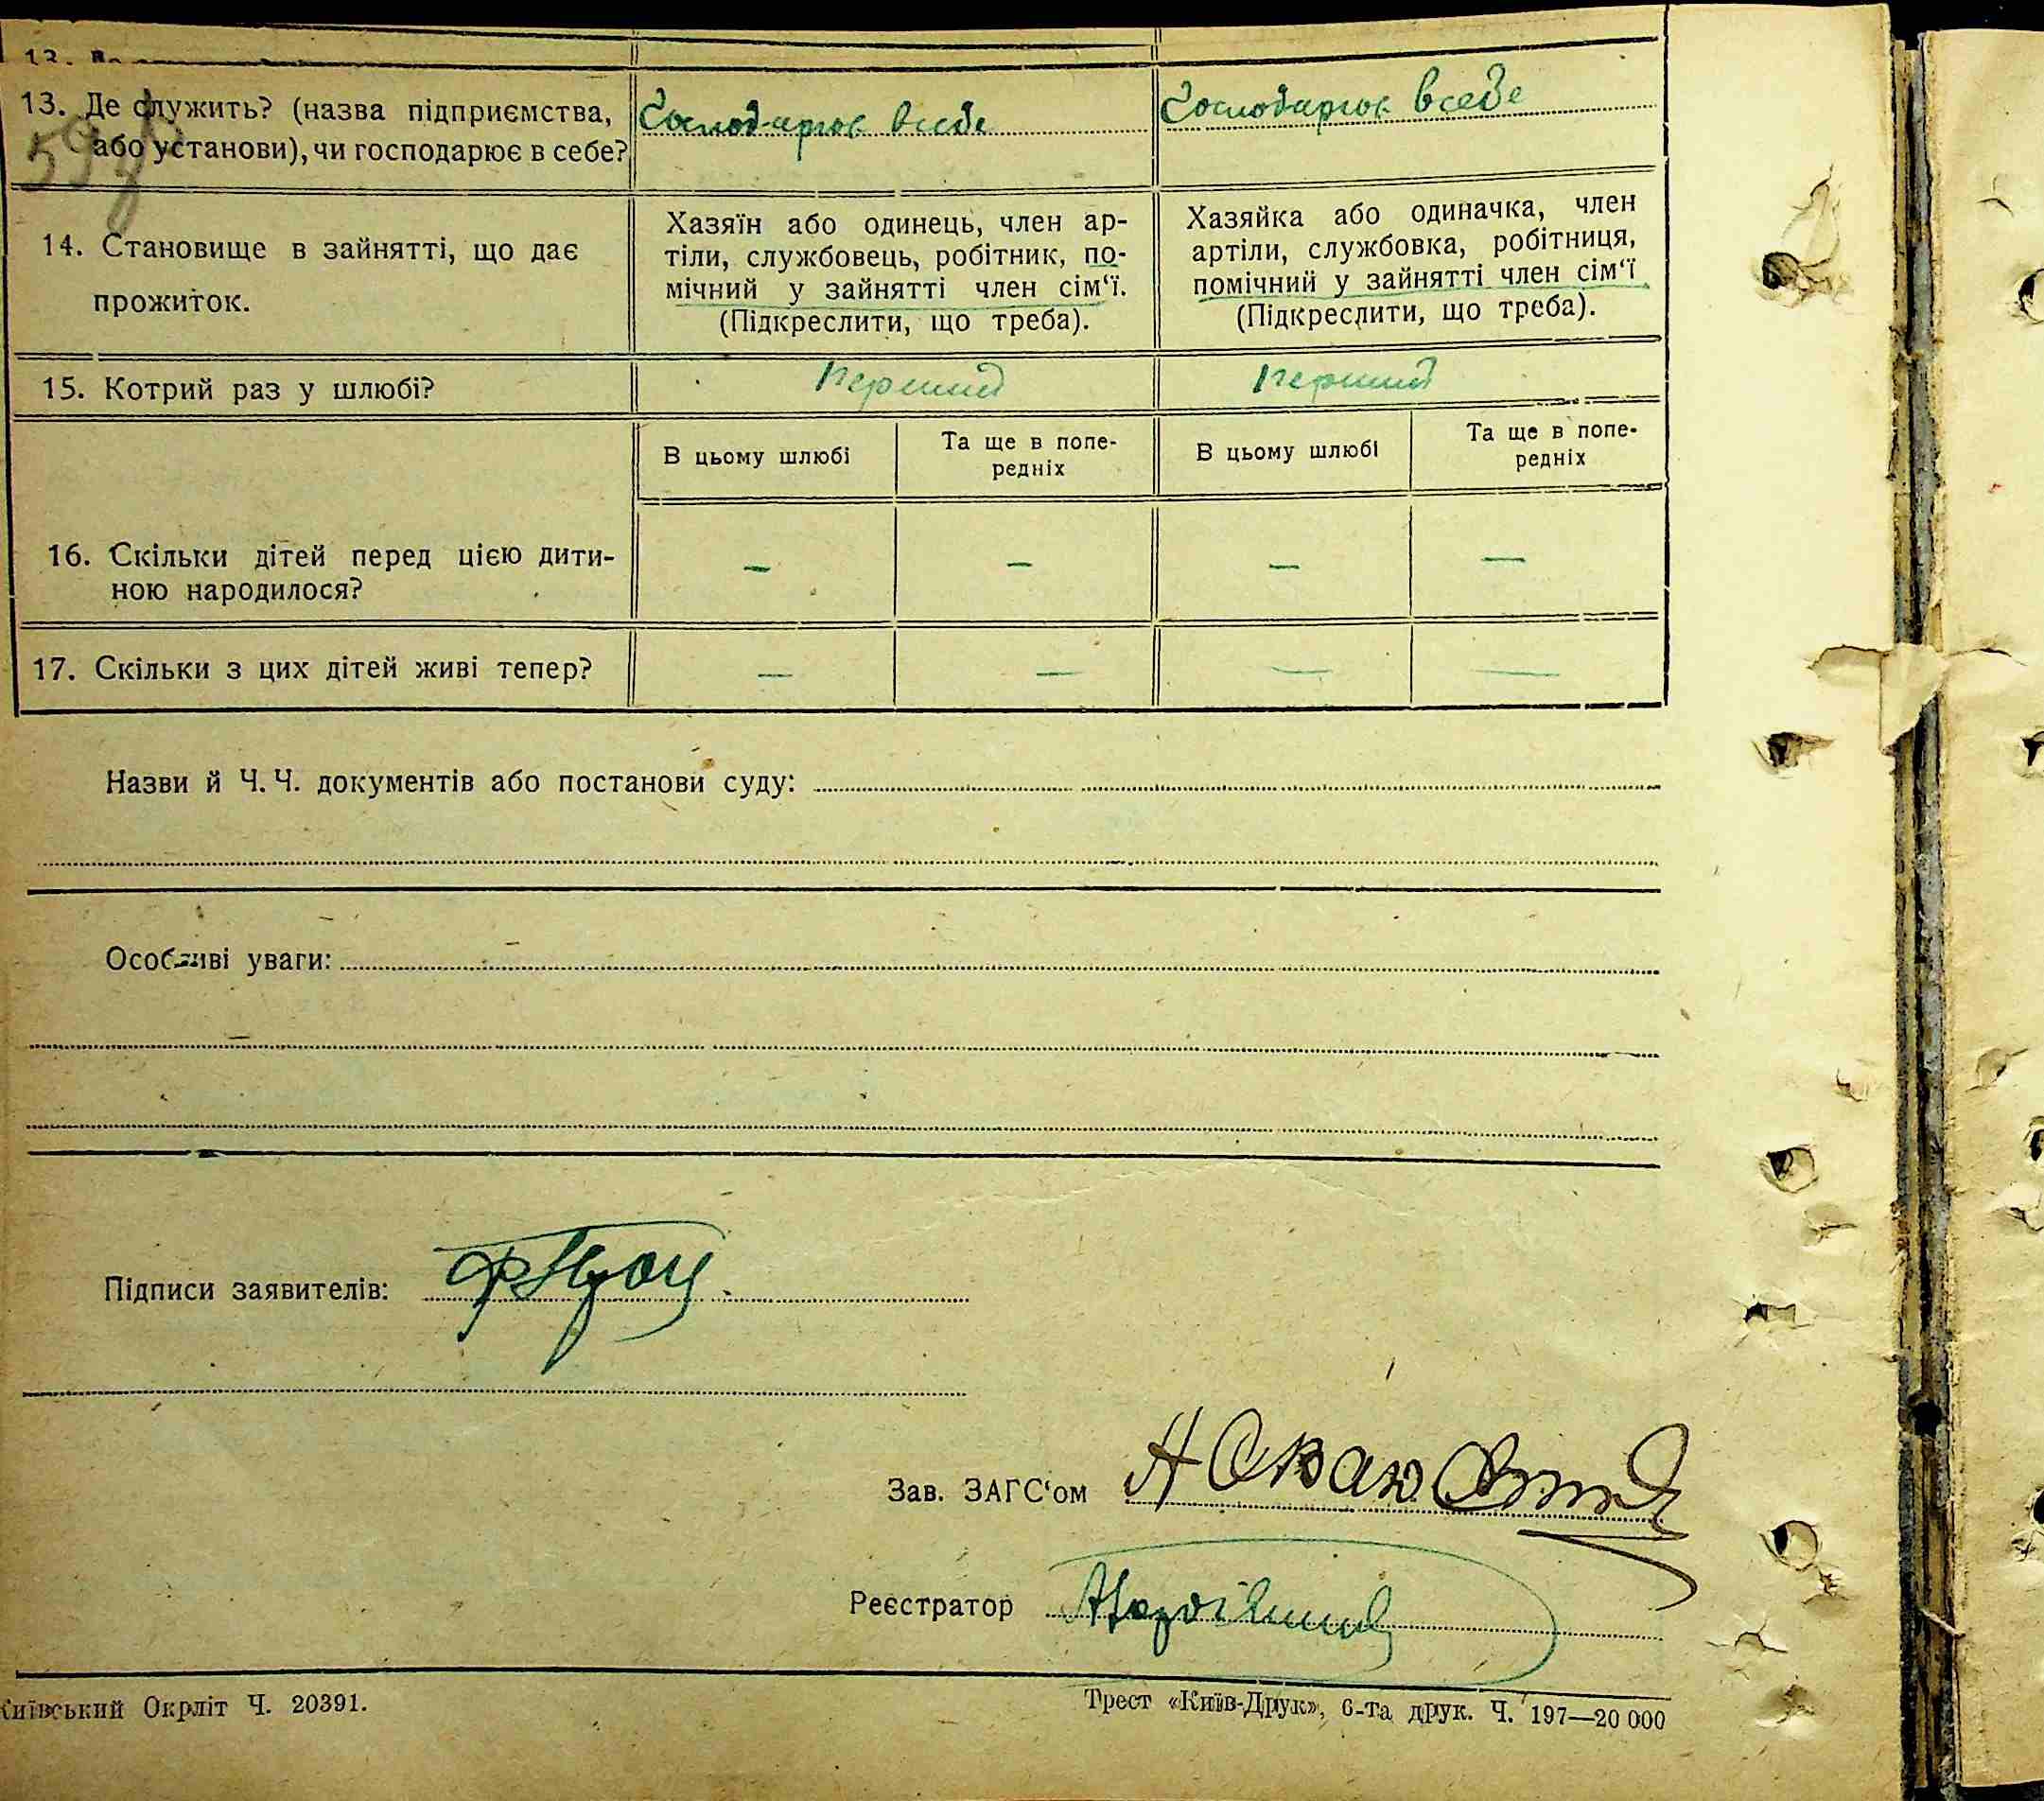 13. Де служить? (назва підприємства, або установи), чи господарює в себе?
Господарює в себе
Господарює в себе
14. Становище в зайнятті, що дає прожиток.
Хазяїн або одинець, член ар-
тіли, службовець, робітник, по-
мічний у зайнятті член сім‘ї.
(Підкреслити, що треба).
Хазяйка або одиначка, член
артіли, службовка, робітниця,
помічний у зайнятті член сім‘ї
(Підкреслити, що треба).
15. Котрий раз у шлюбі?
Перший
Перший
В цьому шлюбі
Та ще в попе-
редніх
В цьому шлюбі
Та ще в попе-
редніх
16. Скільки дітей перед цією дити-
ною народилося?
— — — —
17. Скільки з цих дітей живі тепер?
— — — —
Назви й Ч. Ч. документів або постанови суду:
Особливі уваги:
Підписи заявителів:
Зав. ЗАГС‘ом
Реєстратор
Київський Окрліт Ч. 20391.
Трест «Київ-Друк», 6-та друк. Ч. 197—20 000